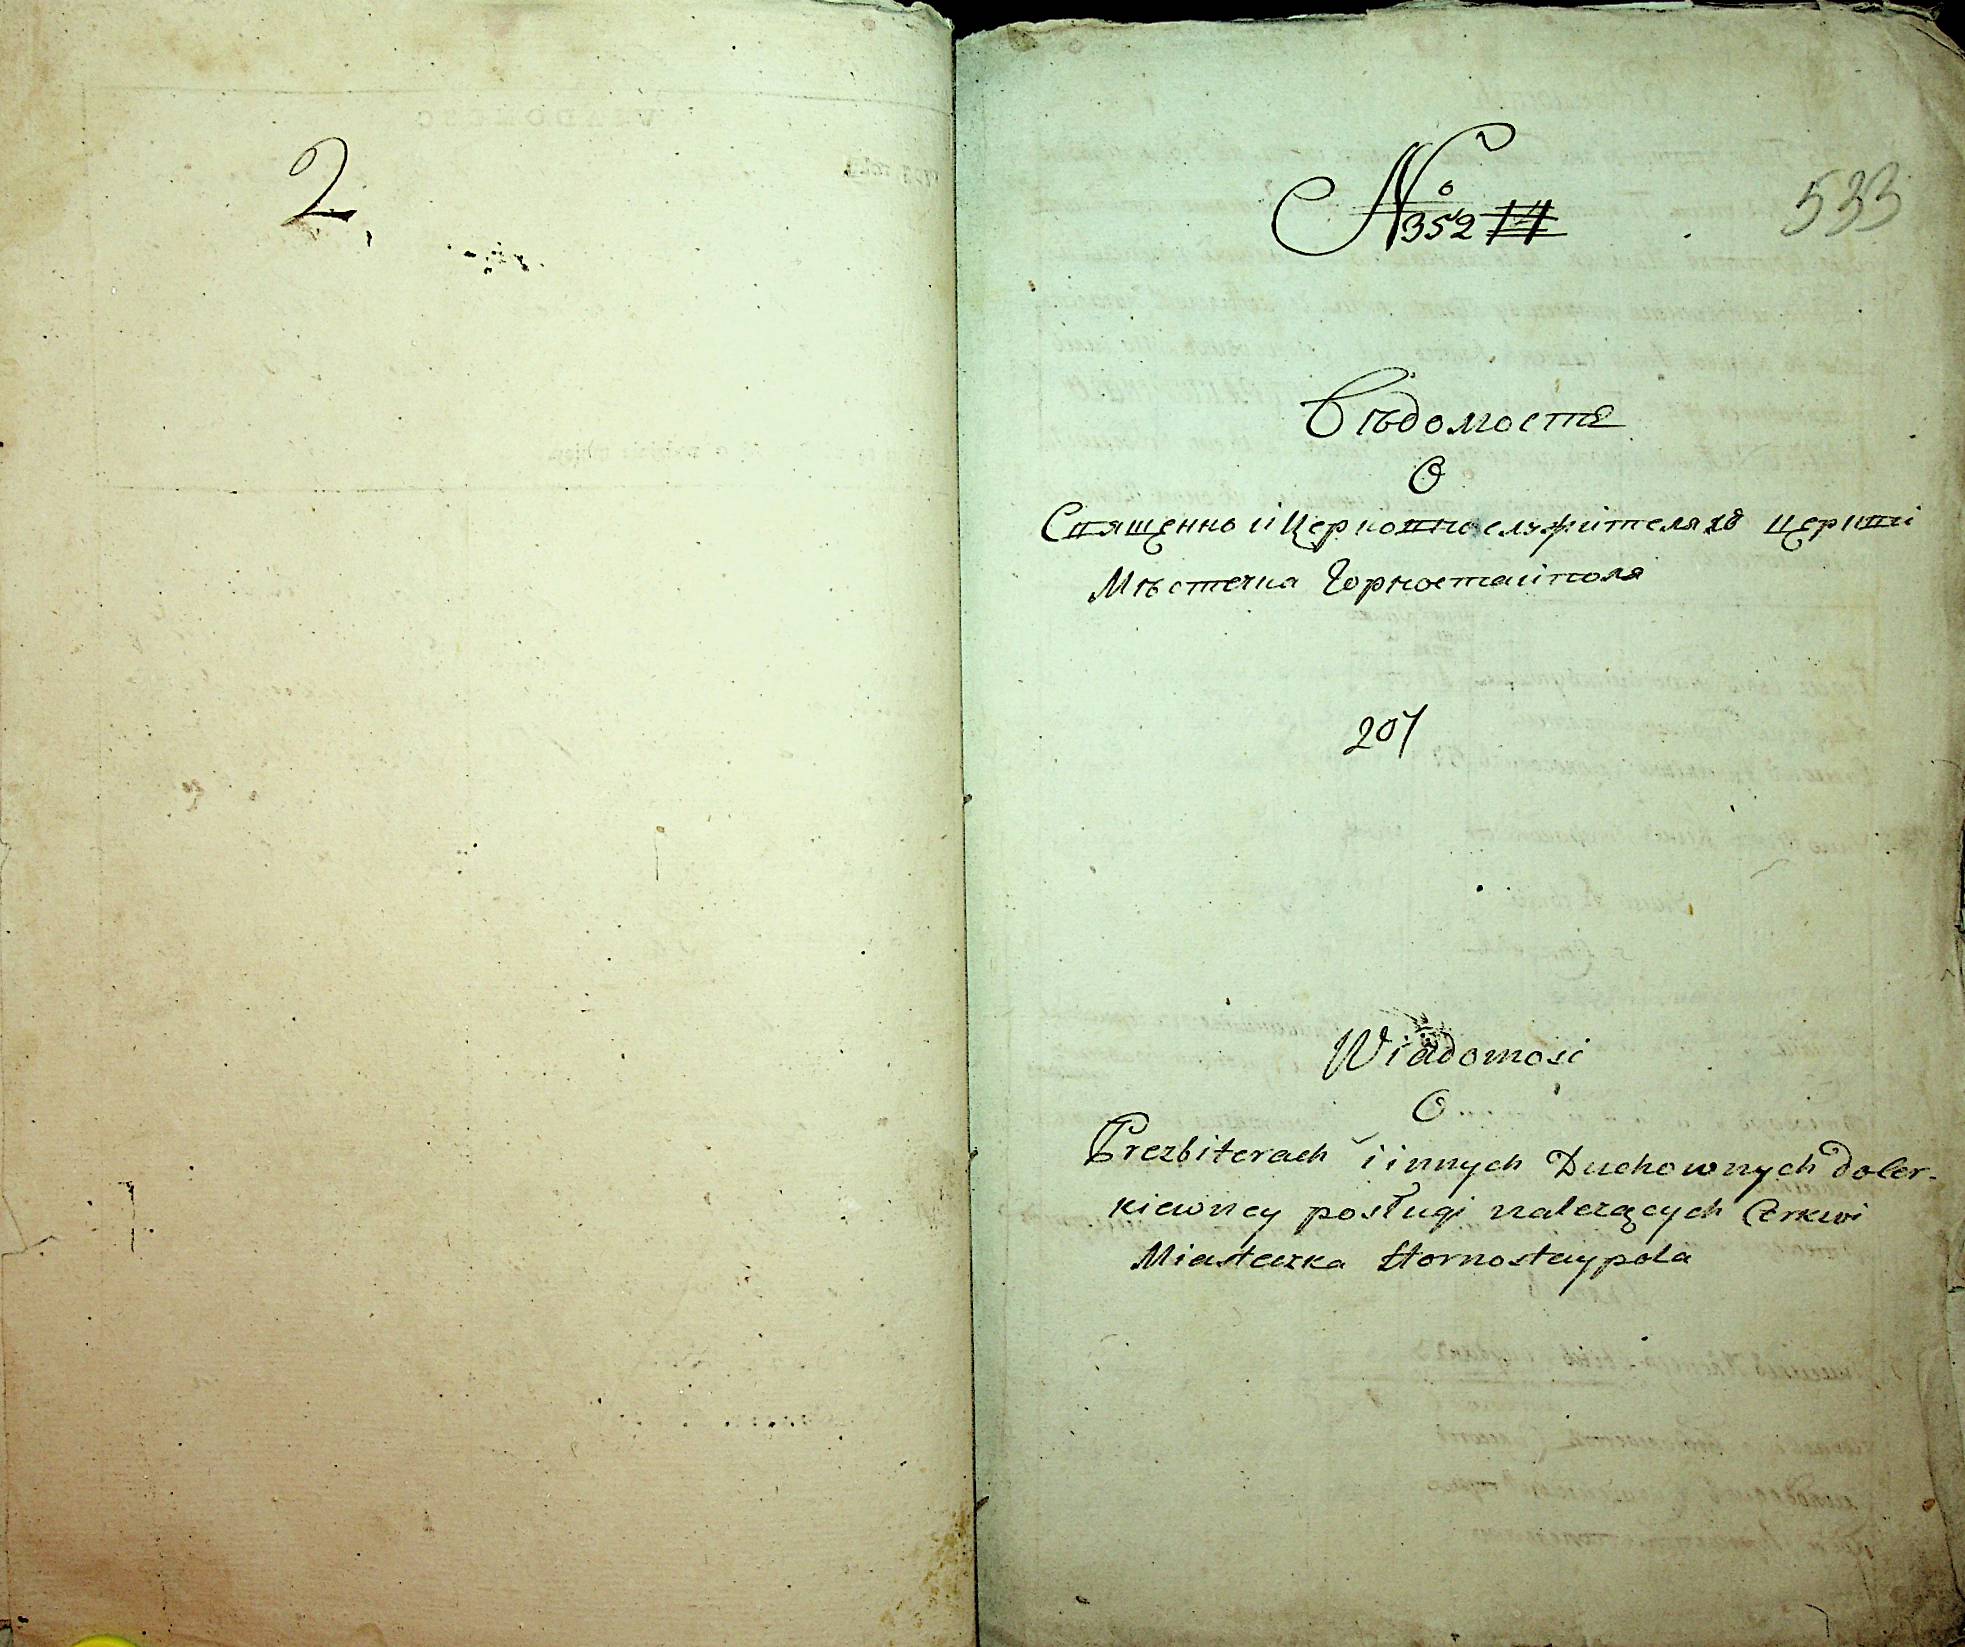 2
№ 352 14
533
Вѣдомость
О
Священно и Церковнослужителяхъ церкви
Мѣстечка Горностайполя
207
Wiadomość
O
Prezbiterach i innych Duchownych do Cer-
kiewney posługi należących Cerkwi
Miasteczka Hornostaypola